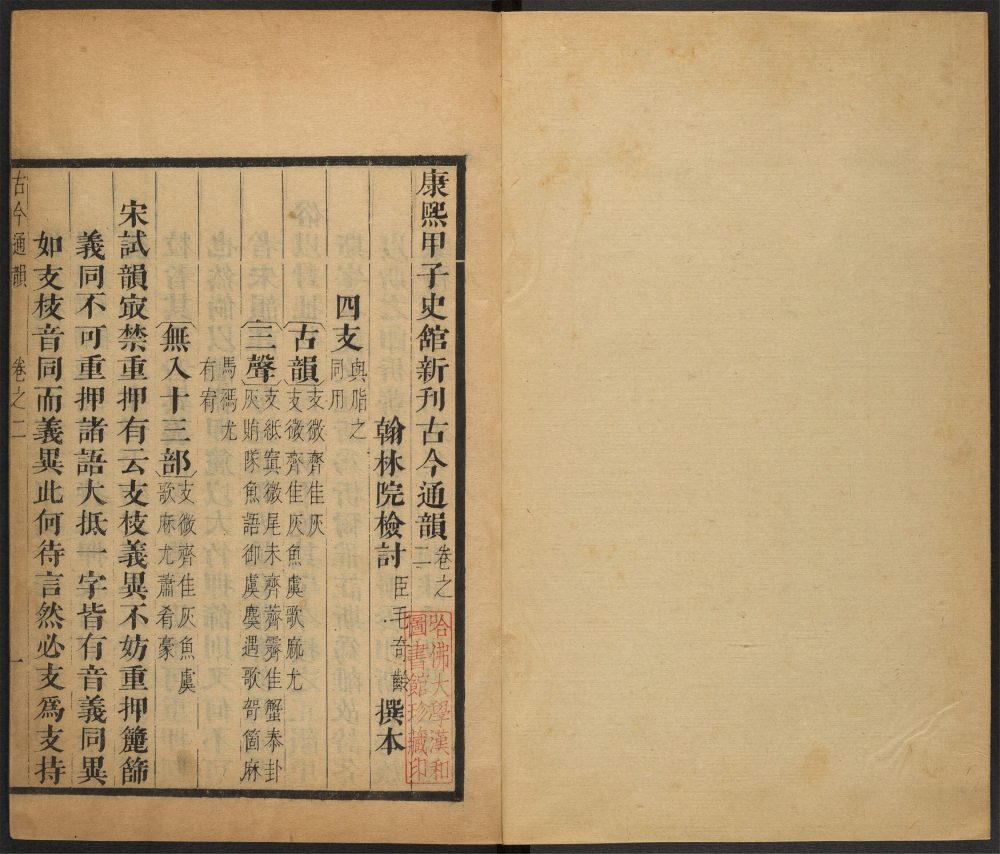 康熙甲子史館新刊古今通韻卷之二
翰林院檢討臣毛奇齡撰本
四支與脂之同用
古韻支微齊佳灰支微齊佳灰魚虞歌麻尤
三聲支紙寘微尾未齊薺霽佳蟹泰卦灰賄隊魚語御虞麌遇歌哿箇麻
馬禡尤有宥
無入十三部支微齊佳灰魚虞歌麻尤蕭肴豪
宋試韻㝡禁重押有云支枝義異不妨重押簏篩
義同不可重押諸語大抵一字皆有音義同異
如支枝音同而義異此何待言然必支爲支持
古今通韻 卷之二 一
哈佛大學漢和圖書館珍藏印